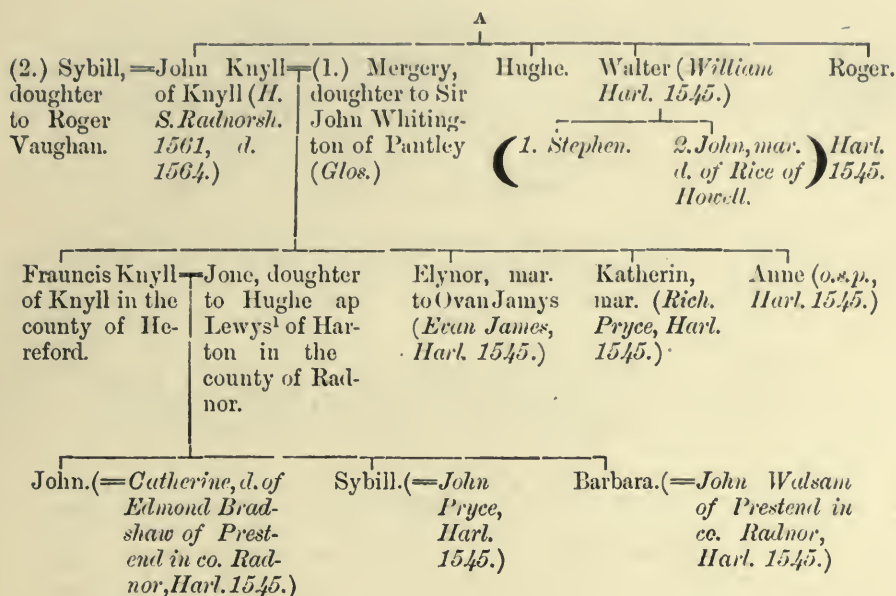 A
(2.) Sybill,
doughter
to Roger
Vaughan.
John Knyll
of Knyll (H.
S. Radnorsh.
1561, d.
1564.)
(1.) Mergery,
doughter to Sir
John Whiting-
ton of Pantley
(Glos.)
Hughe.
Walter (William
Harl. 1545.)
Roger.
(1. Stephen.
2. John, mar.
d. of Rice of
Howell.)
Harl.
1545.
Frauncis Knyll
of Knyll in the
county of He-
reford.
Jone, doughter
to Hughe ap
Lewys¹ of Har-
ton in the
county of Rad-
nor.
Elynor, mar.
to Ovan Jamys
(Evan James,
Harl. 1545.)
Katherin,
mar. (Rich.
Pryce, Harl.
1545.)
Anne (o.s.p.,
Harl. 1545.)
John. (=Catherine, d. of
Edmond Brad-
shaw of Prest-
end in co. Rad-
nor, Harl. 1545.)
Sybill. (=John
Pryce,
Harl.
1545.)
Barbara. (=John Walsam
of Prestend in
co. Radnor,
Harl. 1545.)